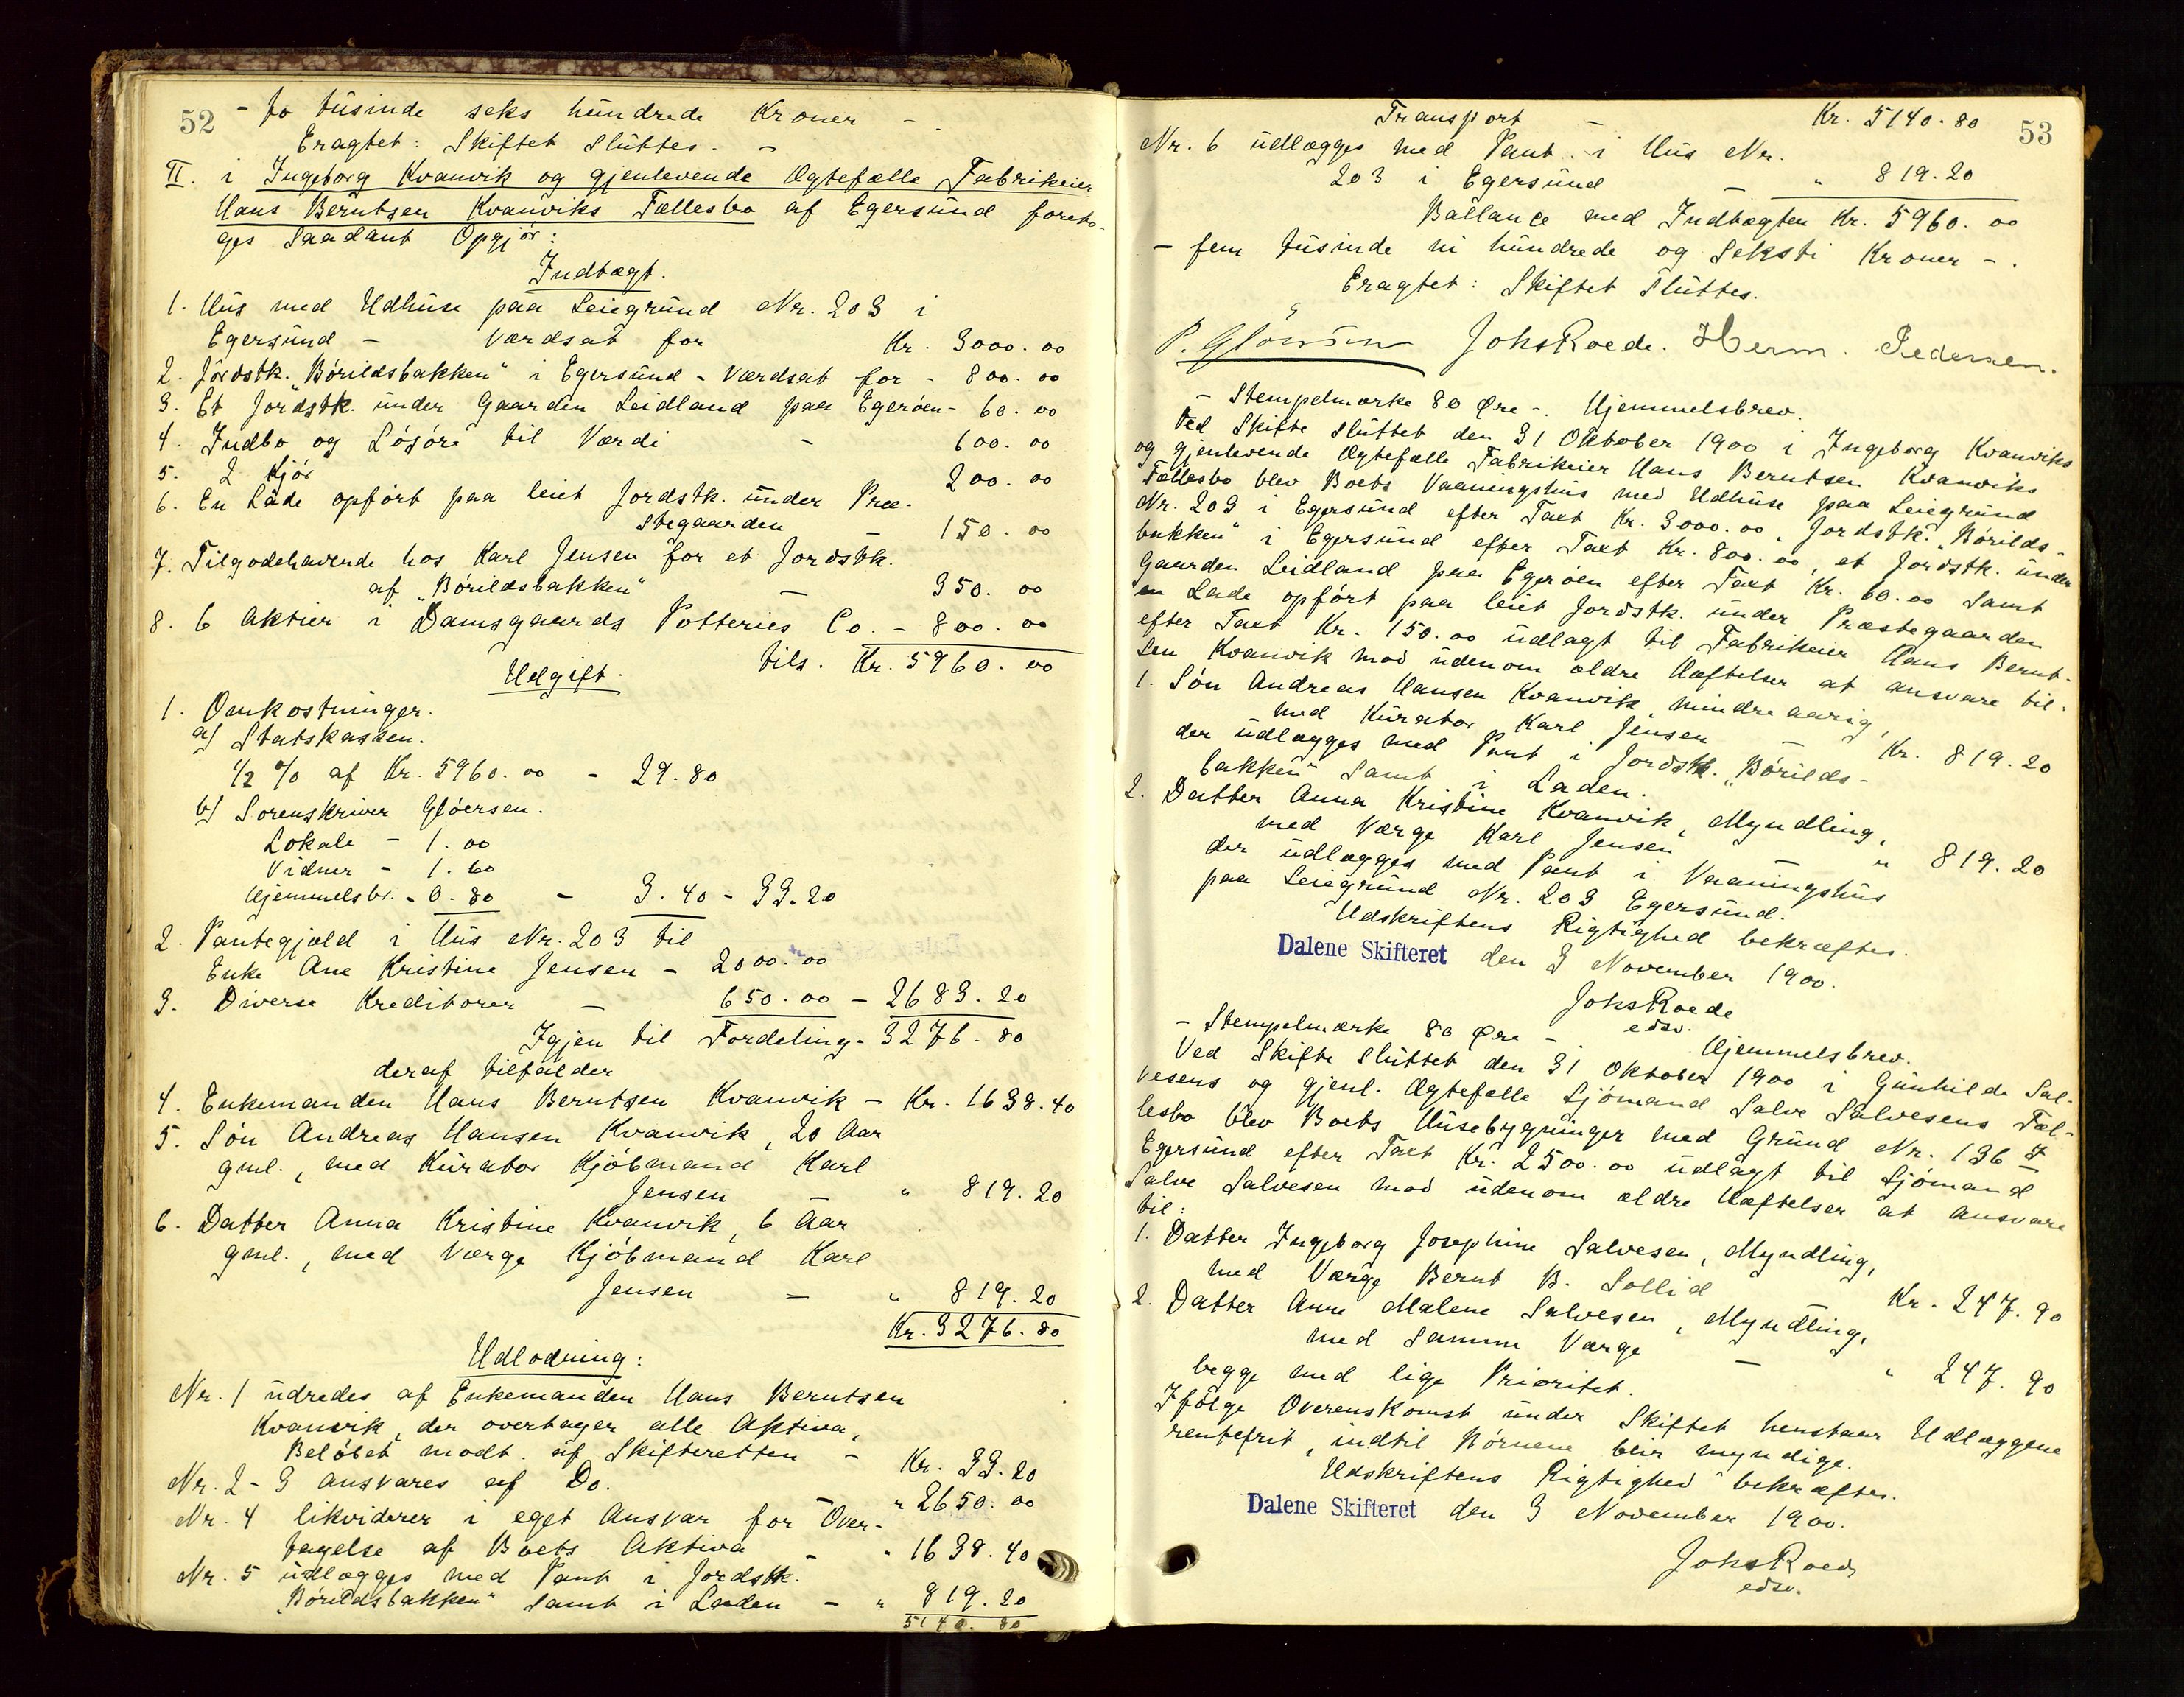 52
- to tusinde seks hundrede Kroner -.
Eragtet: Skiftet sluttes. -
II. i Ingeborg Kvanvik og gjenlevende Ægtefælle Fabrikeier
Hans Berntsen Kvanviks Fællesbo af Egersund foreta-
ges saadant Opgjör:
Indtægt.
1. Hus med Udhuse paa Leiegrund Nr. 203 i
Egersund - Værdsat for Kr. 3000.00
2. Jordstk. "Börildsbakken" i Egersund - Værdsat for - 800.00
3. Et Jordstk. under Gaarden Leidland paa Egeröen - 60.00
4. Indbo og Lösöre til Værdi - 600.00
5. 2 Kjör 200.00
6. En Lade opfört paa leiet Jordstk. under Præ-
stegaarden - 150.00
7. Tilgodehavende hos Karl Jensen for et Jordstk.
af "Börildsbakken" - 350.00
8. 6 Aktier i Damsgaards Potteries Co. - 800.00
tils. Kr. 5960.00
Udgift.
1. Omkostninger.
a) Statskassen.
1/2 % af Kr. 5960.00 - 29.80
b) Sorenskriver Glöersen.
Lokale - 1.00
Vidner - 1.60
Hjemmelsbr. - 0.80 - 3.40 - 33.20
2. Pantegjæld i Hus Nr. 203 til
Enke Ane Kristine Jensen - 2000.00
3. Diverse Kreditorer - 650.00 - 2683.20
Igjen til Fordeling - 3276.80
deraf tilfalder
4. Enkemanden Hans Berntsen Kvanvik - Kr. 1638.40
5. Sön Andreas Hansen Kvanvik, 20 Aar
gml., med Kurator Kjöbmand Karl
Jensen - " 819.20
6. Datter Anna Kristine Kvanvik, 6 Aar
gml., med Værge Kjöbmand Karl
Jensen - " 819.20
Kr. 3276.80
Udlodning:
Nr. 1 udredes af Enkemanden Hans Berntsen
Kvanvik, der overtager alle Aktiva,
Belöbet modt. af Skifteretten - Kr. 33.20
Nr. 2-3 ansvares af Do. - " 2650.00
Nr. 4 likviderer i eget Ansvar for Over-
tagelse af Boets Aktiva - " 1638.40
Nr. 5 udlægges med Pant i Jordstk.
"Börildsbakken" samt i Laden - " 819.20
5140.80
53
Transport - Kr. 5140.80
Nr. 6 udlægges med Pant i Hus Nr.
203 i Egersund - " 819.20
Ballance med Indtægten Kr. 5960.00
- fem tusinde ni hundrede og seksti Kroner -.
Eragtet: Skiftet sluttes.
P. Glöersen Johs Roede. Herm. Pedersen.
- Stempelmærke 80 Øre -. Hjemmelsbrev.
Ved Skifte sluttet den 31 Oktober 1900 i Ingeborg Kvanviks
og gjenlevende Ægtefælle Fabrikeier Hans Berntsen Kvanviks
Fællesbo blev Boets Vaaningshus med Udhuse paa Leiegrund
Nr. 203 i Egersund efter Taxt Kr. 3000.00, Jordstk. "Börilds-
bakken" i Egersund efter Taxt Kr. 800.00, et Jordstk. under
Gaarden Leidland paa Egeröen efter Taxt Kr. 60.00 samt
en Lade opfört paa leiet Jordstk. under Præstegaarden
efter Taxt Kr. 150.00 udlagt til Fabrikeier Hans Bernt-
sen Kvanvik mod udenom ældre Hæftelser at ansvare til:
1. Sön Andreas Hansen Kvanvik, mindreaarig,
med Kurator Karl Jensen - Kr. 819.20
der udlægges med Pant i Jordstk. "Börilds-
bakken" samt i Laden.
2. Datter Anna Kristine Kvanvik, Myndling,
med Værge Karl Jensen - " 819.20
der udlægges med Pant i Vaaningshus
paa Leiegrund Nr. 203 Egersund.
Udskriftens Rigtighed bekræftes.
Dalene Skifteret den 3 November 1900.
Johs Roede
edsv.
- Stempelmærke 80 Øre -. Hjemmelsbrev.
Ved Skifte sluttet den 31 Oktober 1900 i Gunhilde Sal-
vesens og gjenl. Ægtefælle Sjömand Salve Salvesens Fæl-
lesbo blev Boets Husebygninger med Grund Nr. 136 I
Egersund efter Taxt Kr. 2500.00 udlagt til Sjömand
Salve Salvesen mod udenom ældre Hæftelser at ansvare
til:
1. Datter Ingeborg Josephine Salvesen, Myndling,
med Værge Bernt B. Sollid Kr. 247.90
2. Datter Anne Malene Salvesen, Myndling,
med samme Værge - " 247.90
begge med lige Prioritet.
Ifölge Overenskomst under Skiftet henstaar Udlæggene
rentefrit, indtil Börnene blir myndige.
Udskriftens Rigtighed bekræftes.
Dalene Skifteret den 3 November 1900.
Johs Roede
edsv.